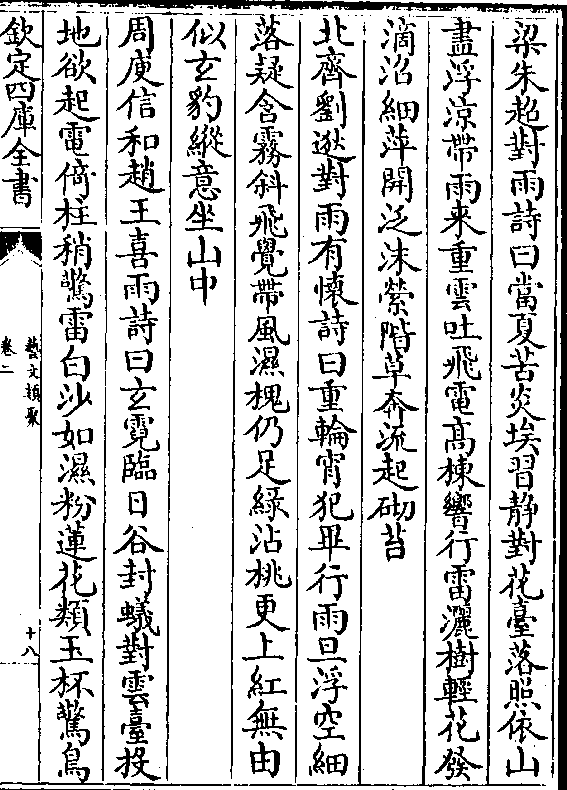 梁朱超對雨詩曰當夏苦炎埃習静對花臺落照依山
盡浮涼帶雨来重雲吐飛電髙棟響行雷灑樹輕花發
滴沼細萍開泛沫縈階草奔流起砌苔
北齊劉逖對雨有懐詩曰重輪宵犯畢行雨旦浮空細
落疑含霧斜飛覺帶風濕槐仍足緑沾桃更上紅無由
似玄豹縱意坐山中
周庾信和趙王喜雨詩曰玄霓臨日谷封蟻對雲臺投
地欲起電倚柱稍驚雷白沙如濕粉蓮花類玉杯驚鳥
欽定四庫全書
藝文類聚
卷二
十八